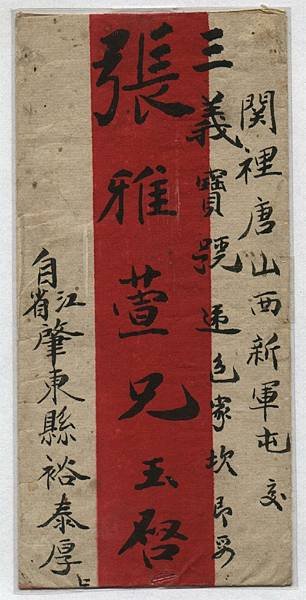 関裡唐山西新軍屯 交
三義寶號 遞包家坎即妥
張雅萱兄玉啓
自江省肇東縣裕泰厚上